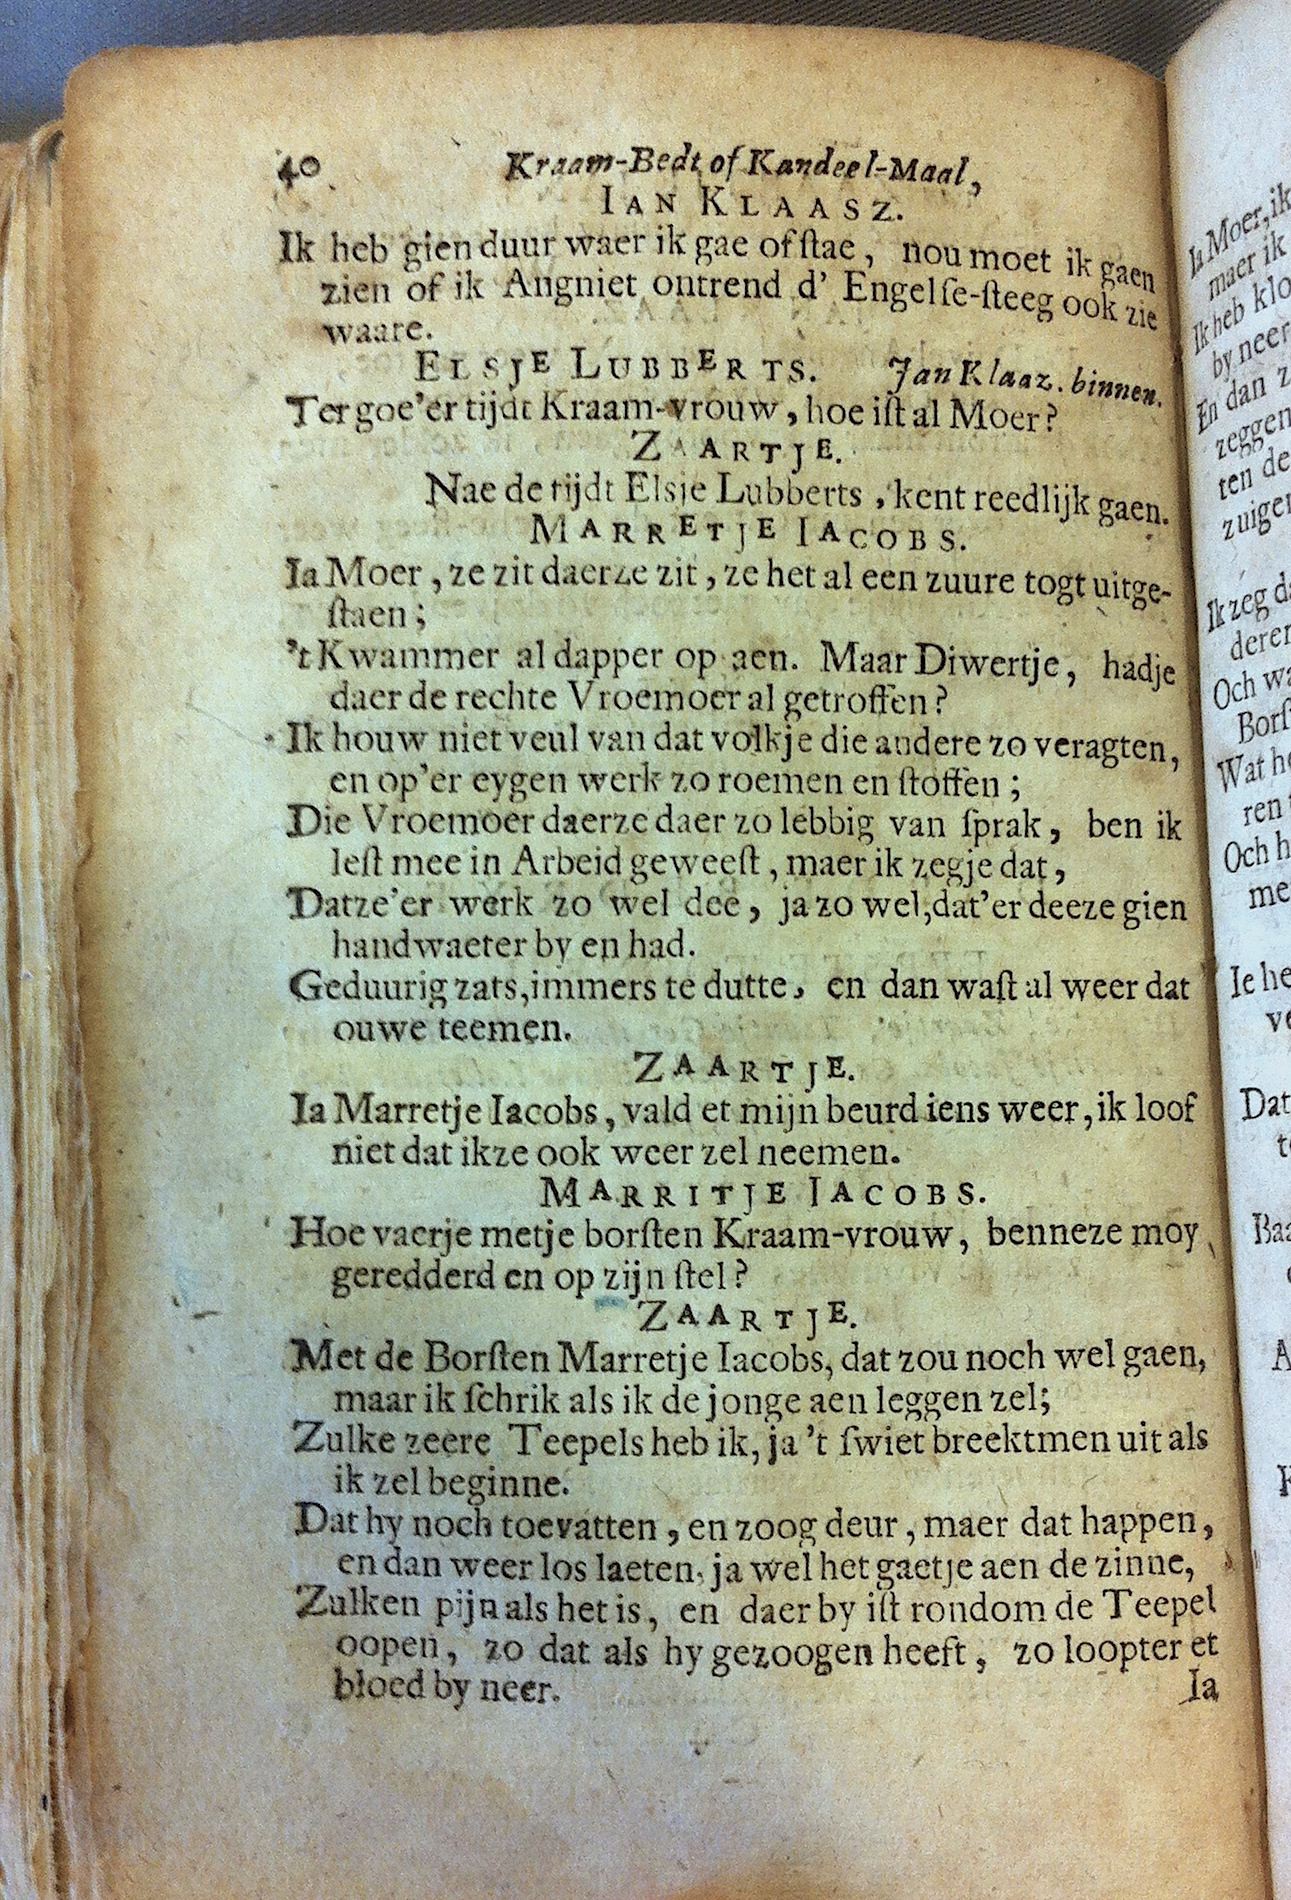 40 Kraam-Bedt of Kandeel-Maal,
IAN KLAASZ.
Ik heb gien duur waer ik gae of ſtae, nou moet ik gaen
zien of ik Angniet ontrend d' Engelſe-ſteeg ook zie
waare.
ELSJE LUBBERTS. Jan Klaaz. binnen.
Ter goe'er tijdt Kraam-vrouw, hoe iſt al Moer?
ZAARTJE.
Nae de tijdt Elsje Lubberts, kent reedlijk gaen.
MARRETJE IACOBS.
Ia Moer, ze zit daerze zit, ze het al een zuure togt uitge-
ſtaen;
't Kwammer al dapper op aen. Maar Diwertje, hadje
daer de rechte Vroemoer al getroffen?
Ik houw niet veul van dat volkje die andere zo veragten,
en op'er eygen werk zo roemen en ſtoffen;
Die Vroemoer daerze daer zo lebbig van ſprak, ben ik
leſt mee in Arbeid geweeſt, maer ik zegje dat,
Datze'er werk zo wel dee, ja zo wel, dat'er deeze gien
handwaeter by en had.
Geduurig zats, immers te dutte, en dan waſt al weer dat
ouwe teemen.
ZAARTJE.
Ia Marretje Iacobs, vald et mijn beurd iens weer, ik loof
niet dat ikze ook weer zel neemen.
MARRITJE IACOBS.
Hoe vaerje metje borſten Kraam-vrouw, benneze moy
geredderd en op zijn ſtel?
ZAARTJE.
Met de Borſten Marretje Iacobs, dat zou noch wel gaen,
maar ik ſchrik als ik de jonge aen leggen zel;
Zulke zeere Teepels heb ik, ja 't ſwiet breektmen uit als
ik zel beginne.
Dat hy noch toevatten, en zoog deur, maer dat happen,
en dan weer los laeten, ja wel het gaetje aen de zinne,
Zulken pijn als het is, en daer by iſt rondom de Teepel
oopen, zo dat als hy gezoogen heeft, zo loopter et
bloed by neer.
Ia
Ia Moer, ik
maer ik
Ik heb
by neer
En dan
ten de
Ik zeg
Och
Wat
Och
Dat